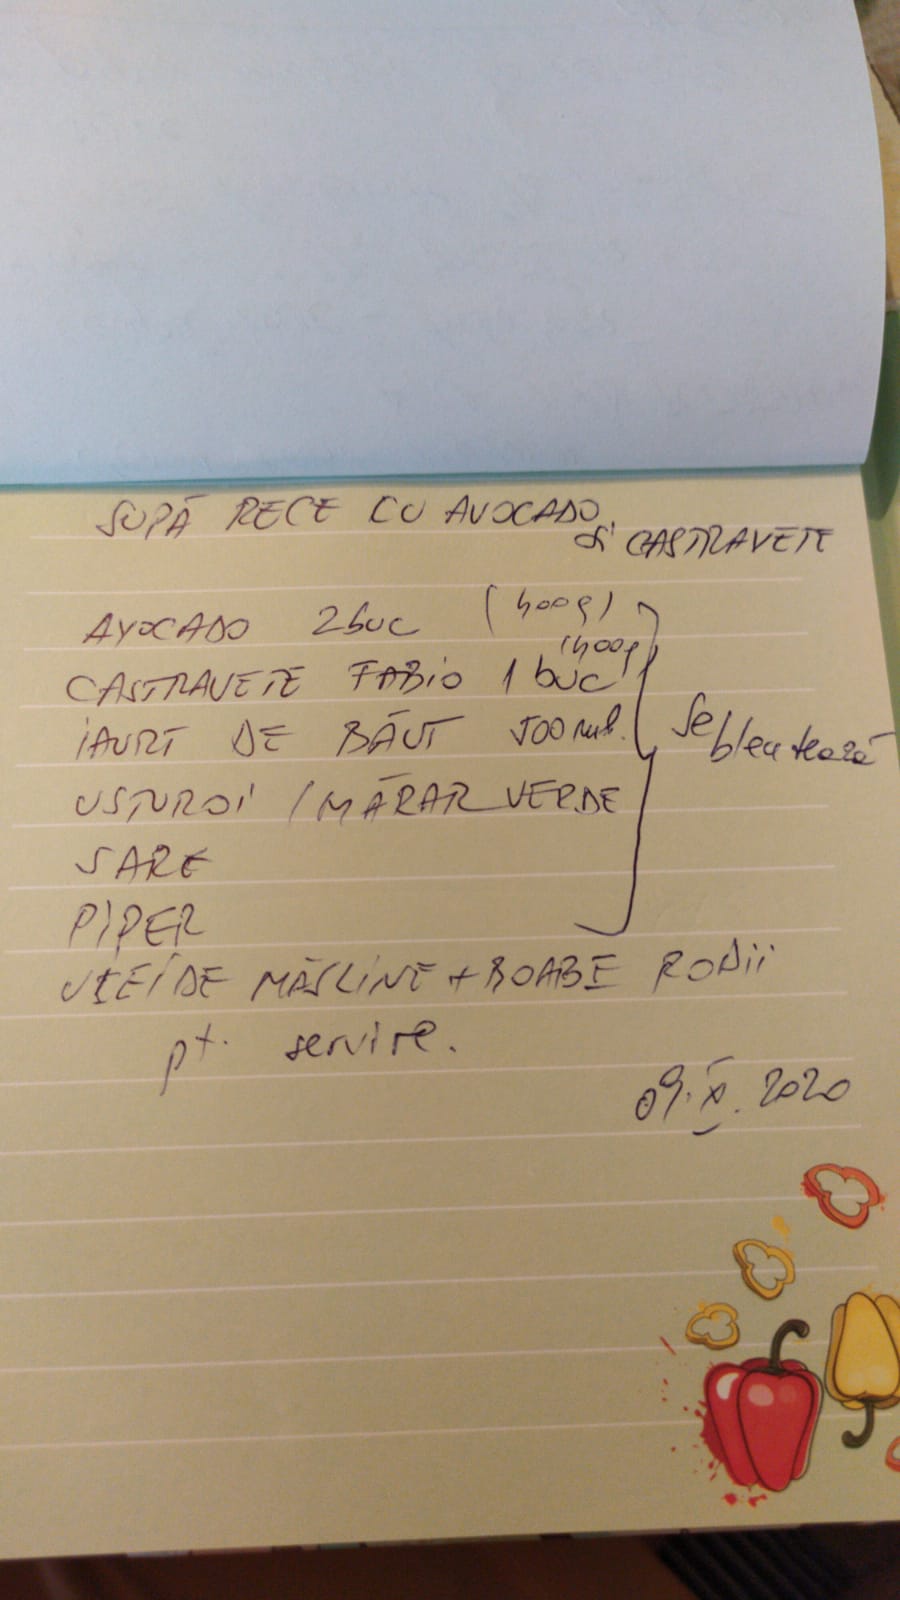 SUPĂ RECE CU AVOCADO
și CASTRAVETE
AVOCADO 2 buc (400g)
CASTRAVETE FABIO 1 buc (400g)
IAURT DE BĂUT 500 ml.
Se blentează
USTUROI / MĂRAR VERDE
SARE
PIPER
ULEI DE MĂSLINE + BOABE RODII
pt. servire.
09.X.2020